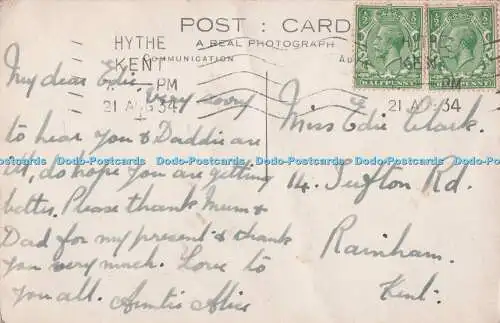 POST : CARD
A REAL PHOTOGRAPH
COMMUNICATION
HYTHE
KENT
PM
21 AUG 34
21 AU 34
PM
HALFPENNY
HALFPENNY
My dear Edie
Very sorry
to hear you & Daddie are
ill, do hope you are getting
better. Please thank Mum &
Dad for my present & thank
you very much. Love to
you all. Auntie Alice
Miss Edie Clark.
14. Tufton Rd.
Rainham.
Kent.
Dodo-Postcards Dodo-Postcards Dodo-Postcards Dodo-Postcards Dodo-Postcards